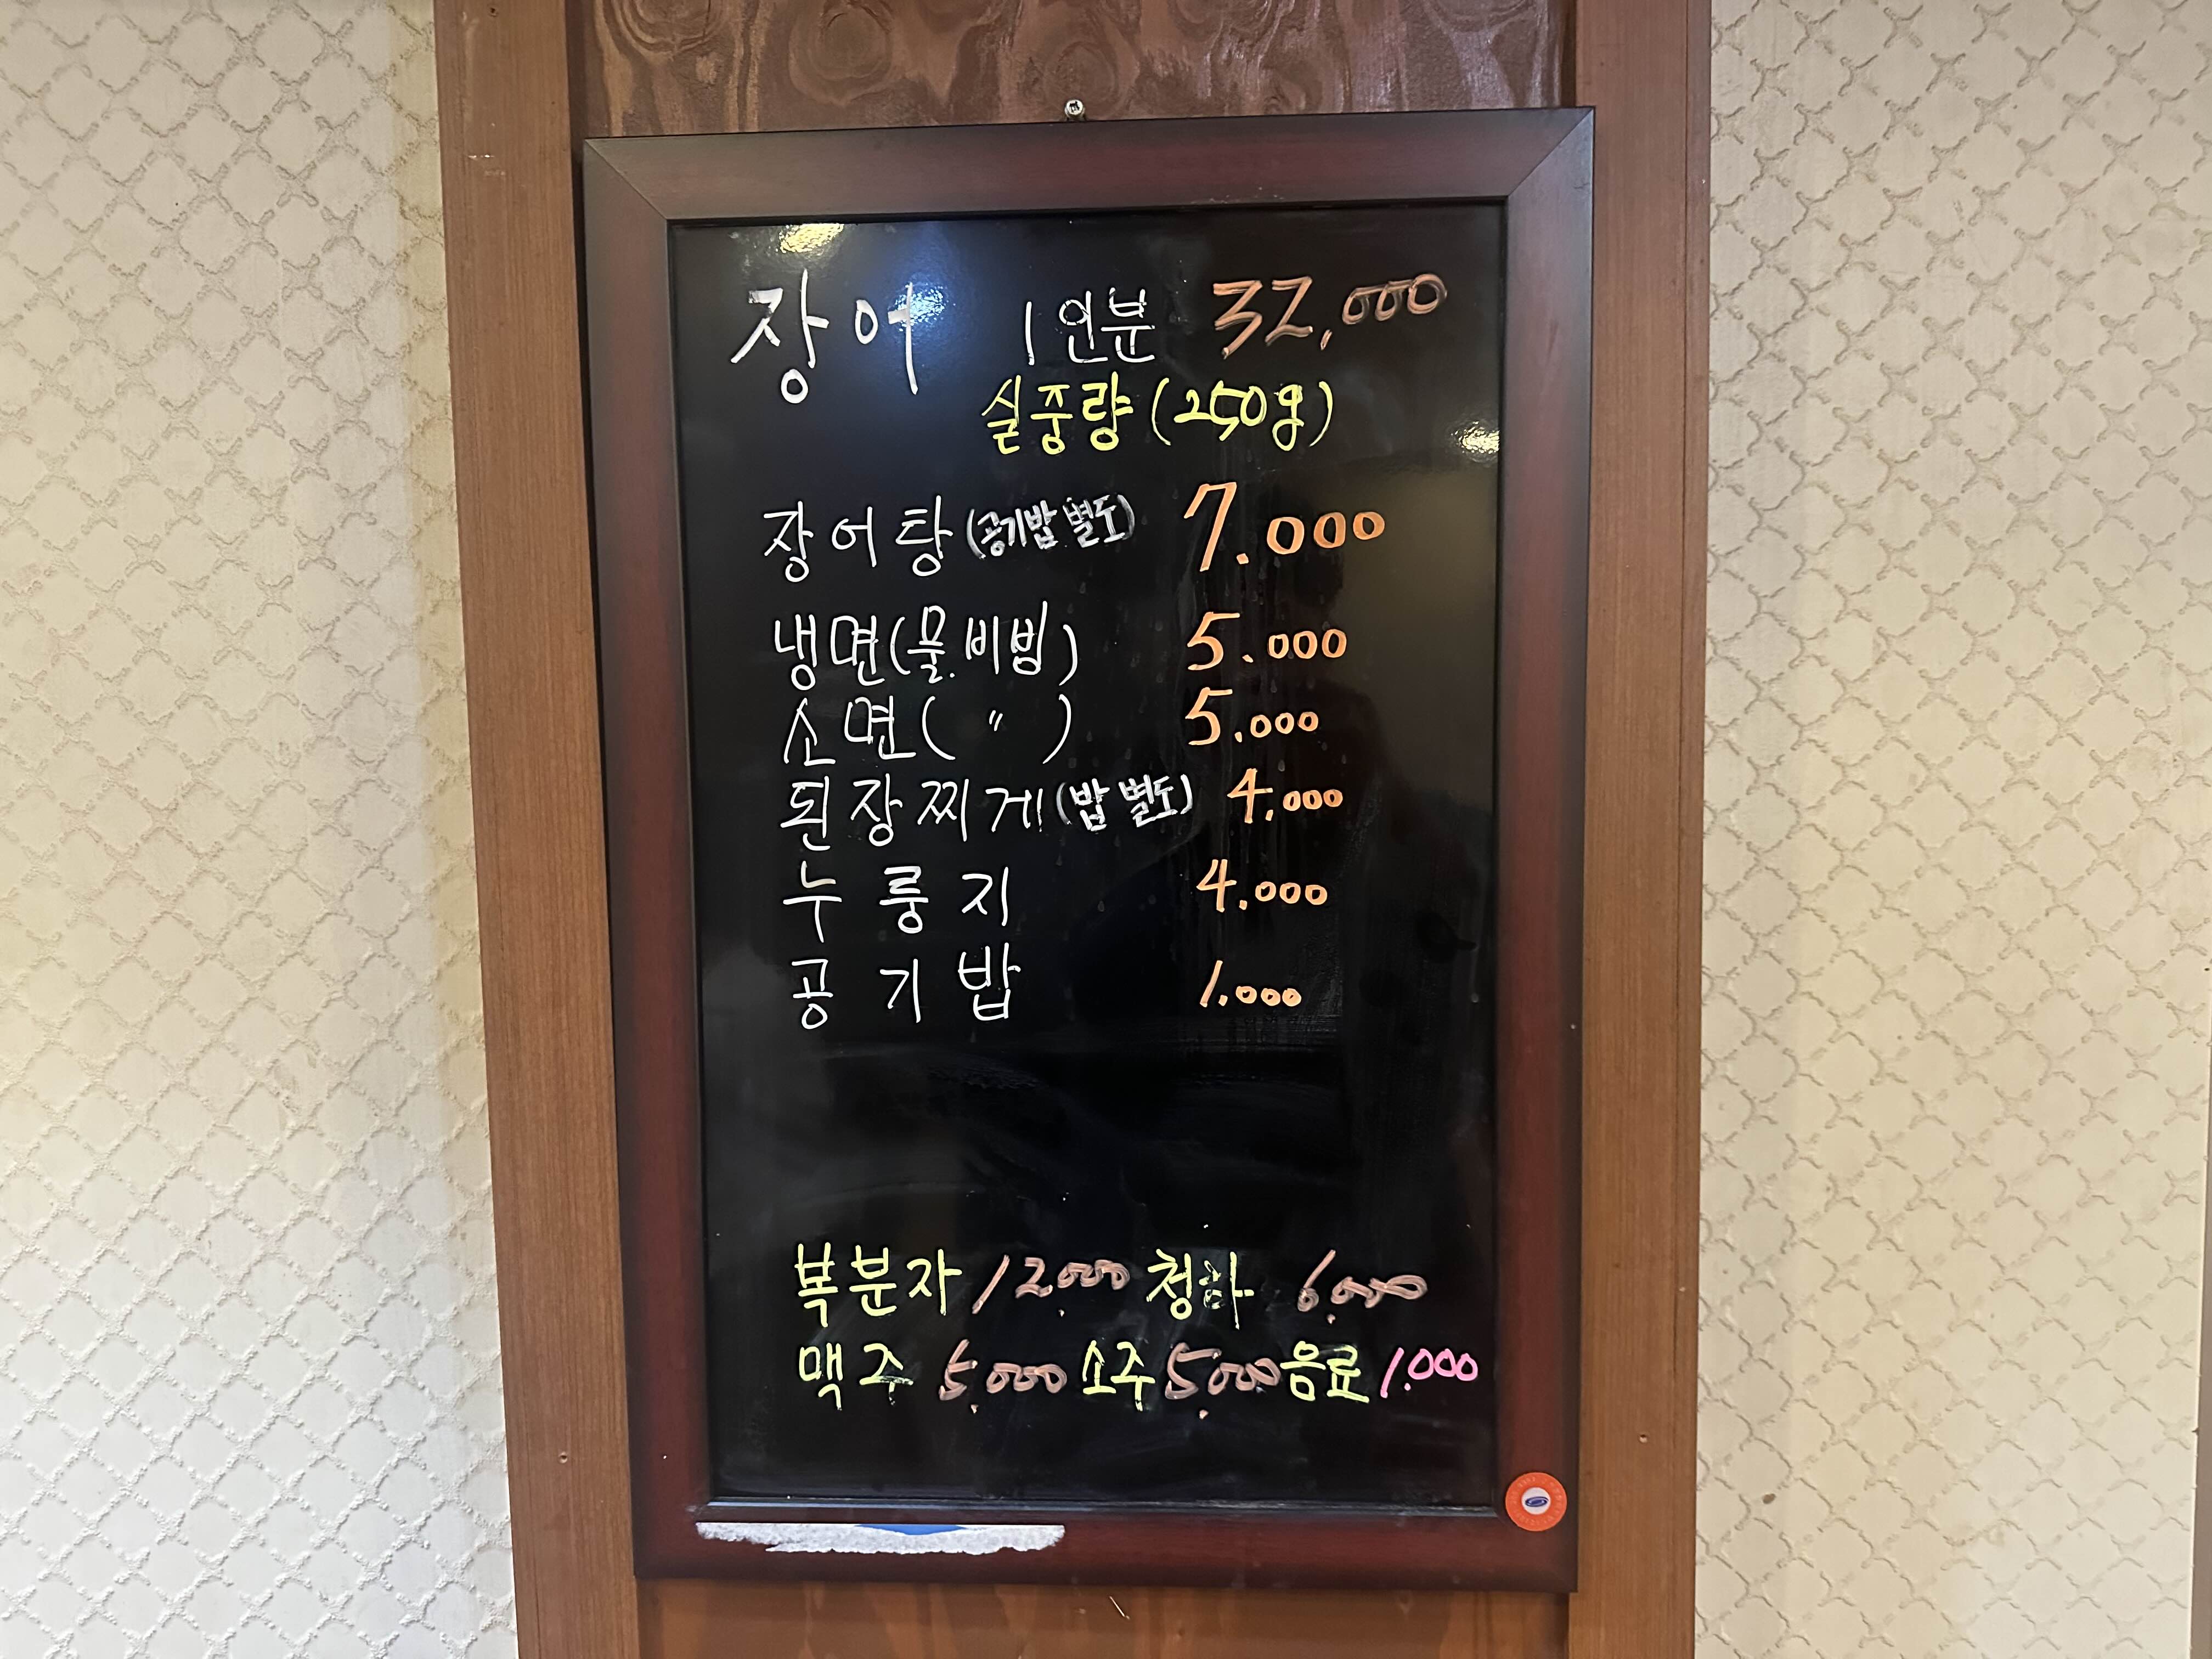 장어 1인분 32,000
실중량(250g)
장어탕(공기밥 별도) 7.000
냉면(물.비빔) 5.000
소면( 〃 ) 5.000
된장찌게(밥 별도) 4.000
누룽지 4.000
공기밥 1.000
복분자 12.000 청하 6.000
맥주 5.000 소주 5.000 음료 1.000